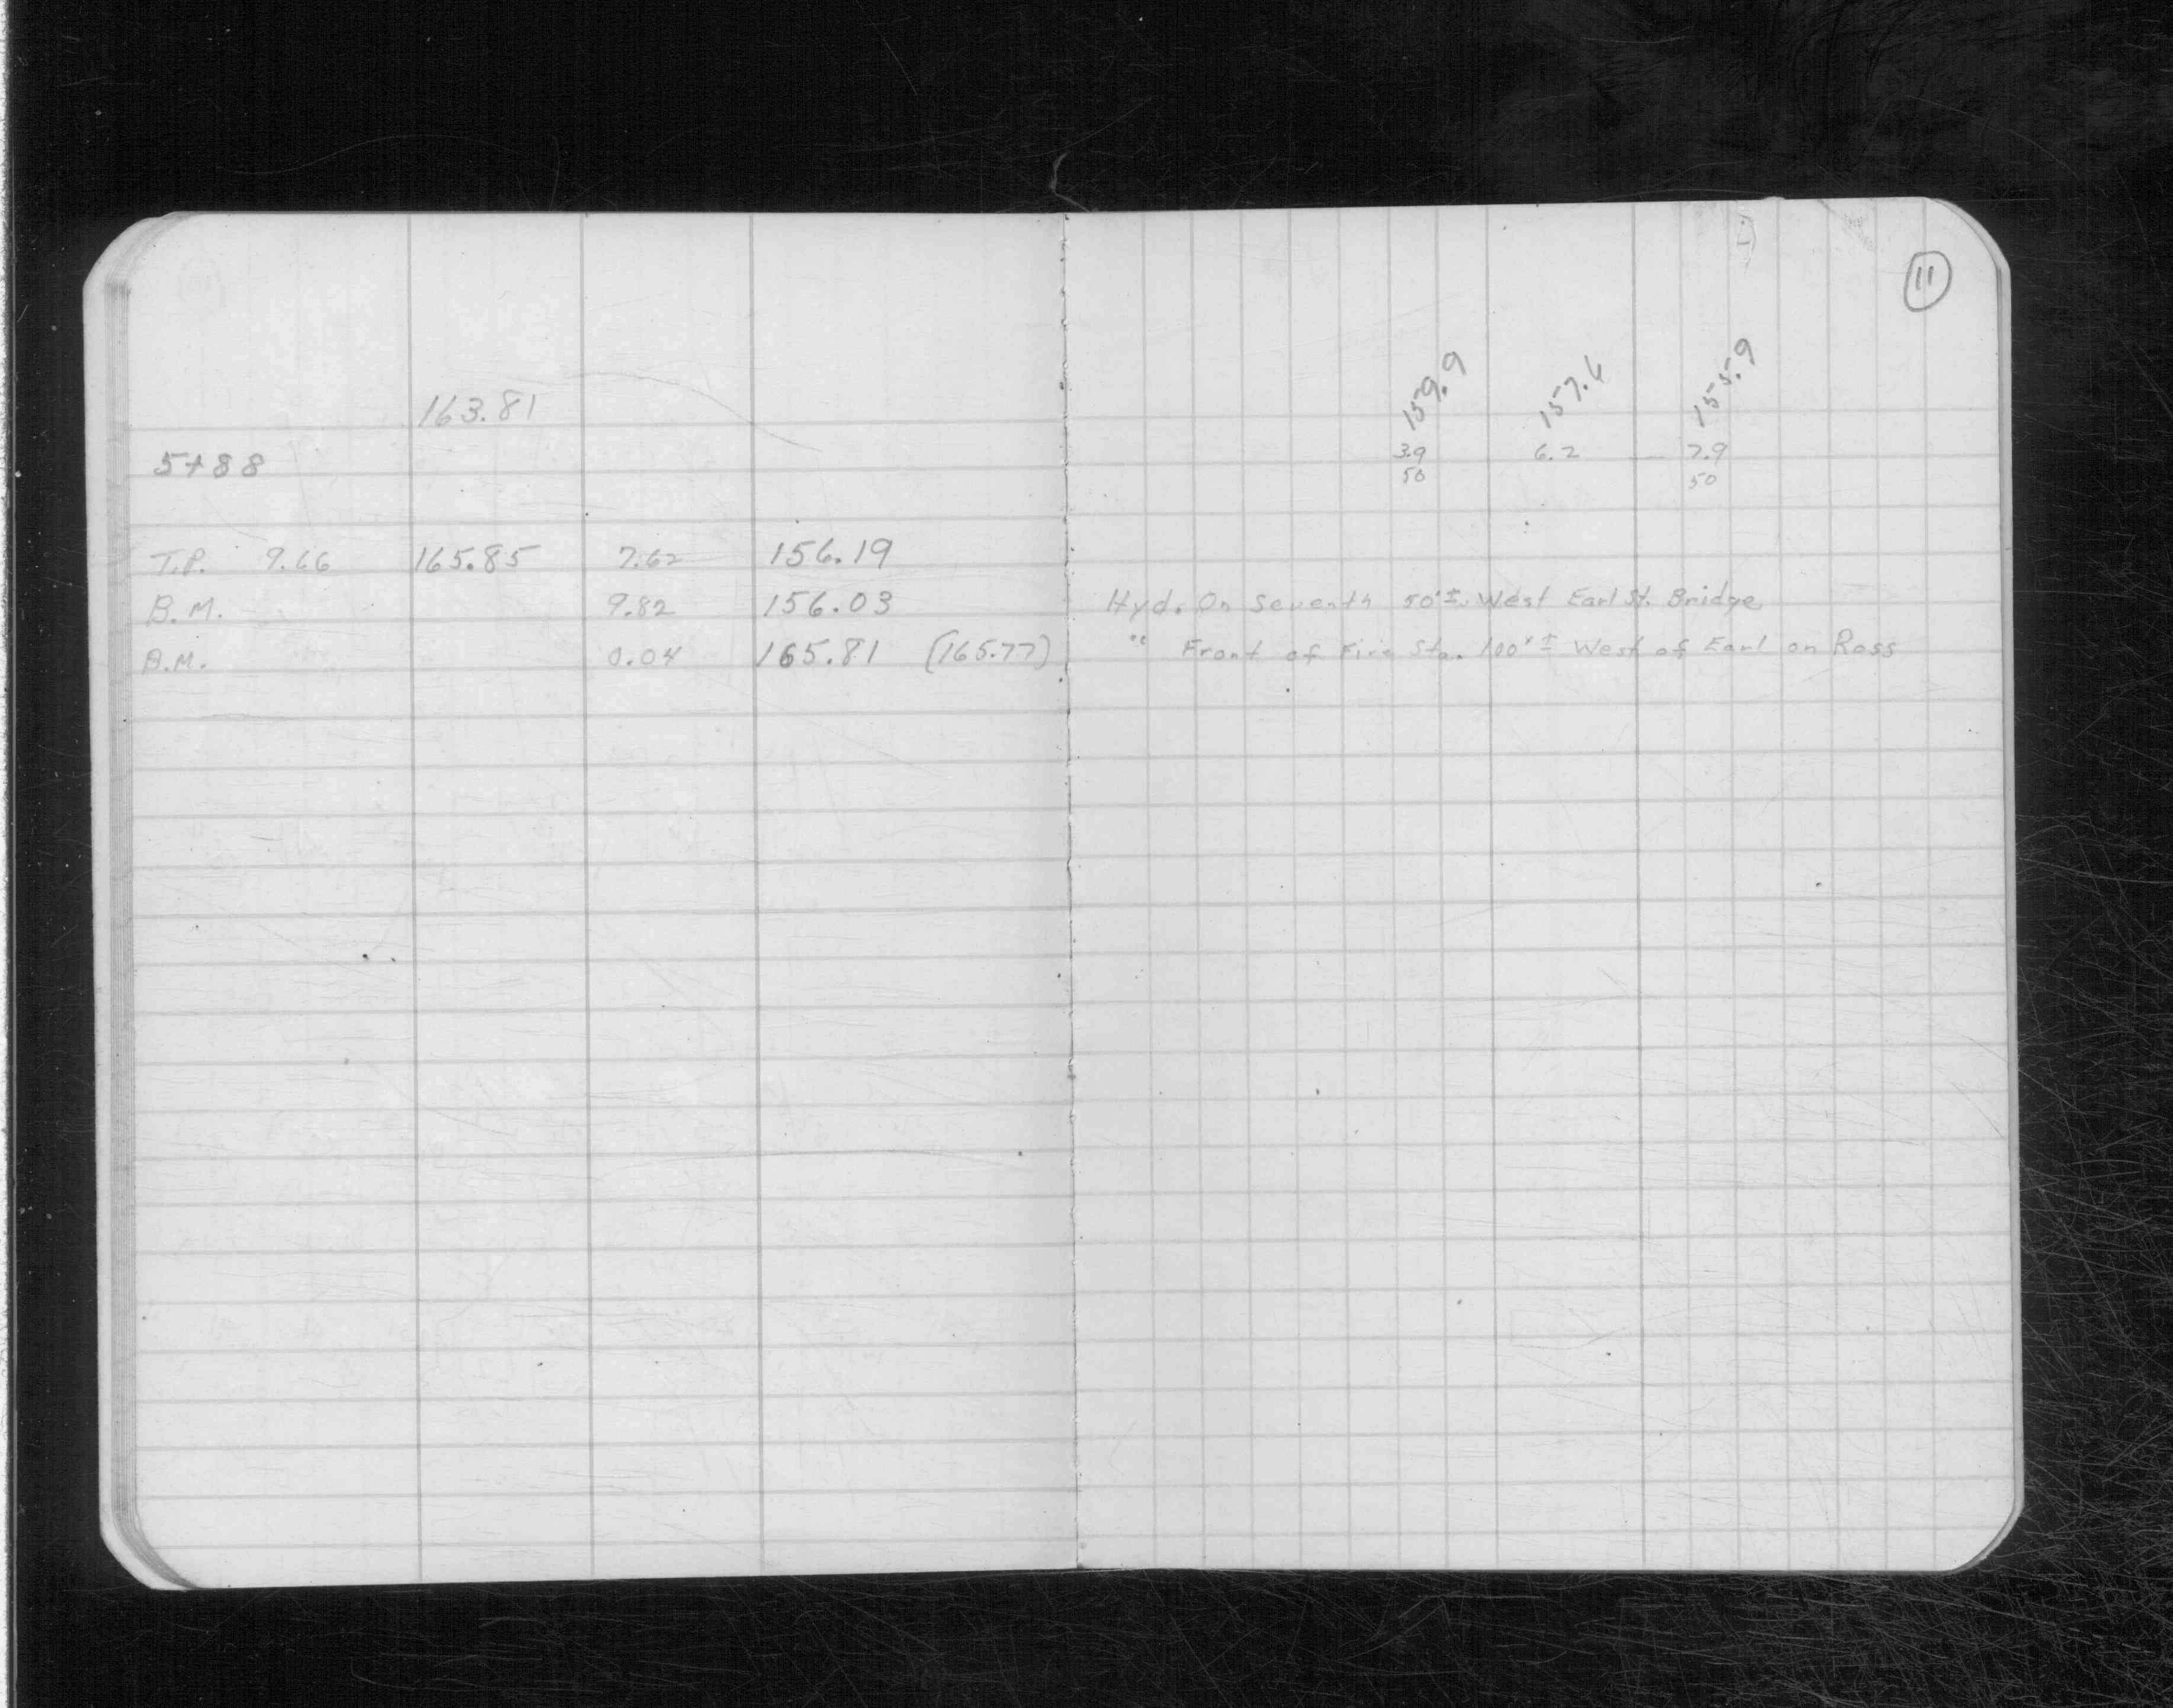 11
163.81 159.9 157.6 155.9
5+88 3.9 6.2 7.9
50 50
T.P. 9.66 165.85 7.62 156.19
B.M. 9.82 156.03 Hyd. On Seventh 50'± West Earl St. Bridge
B.M. 0.04 165.81 (165.77) " Front of Fire Sta. 100'± West of Earl on Ross